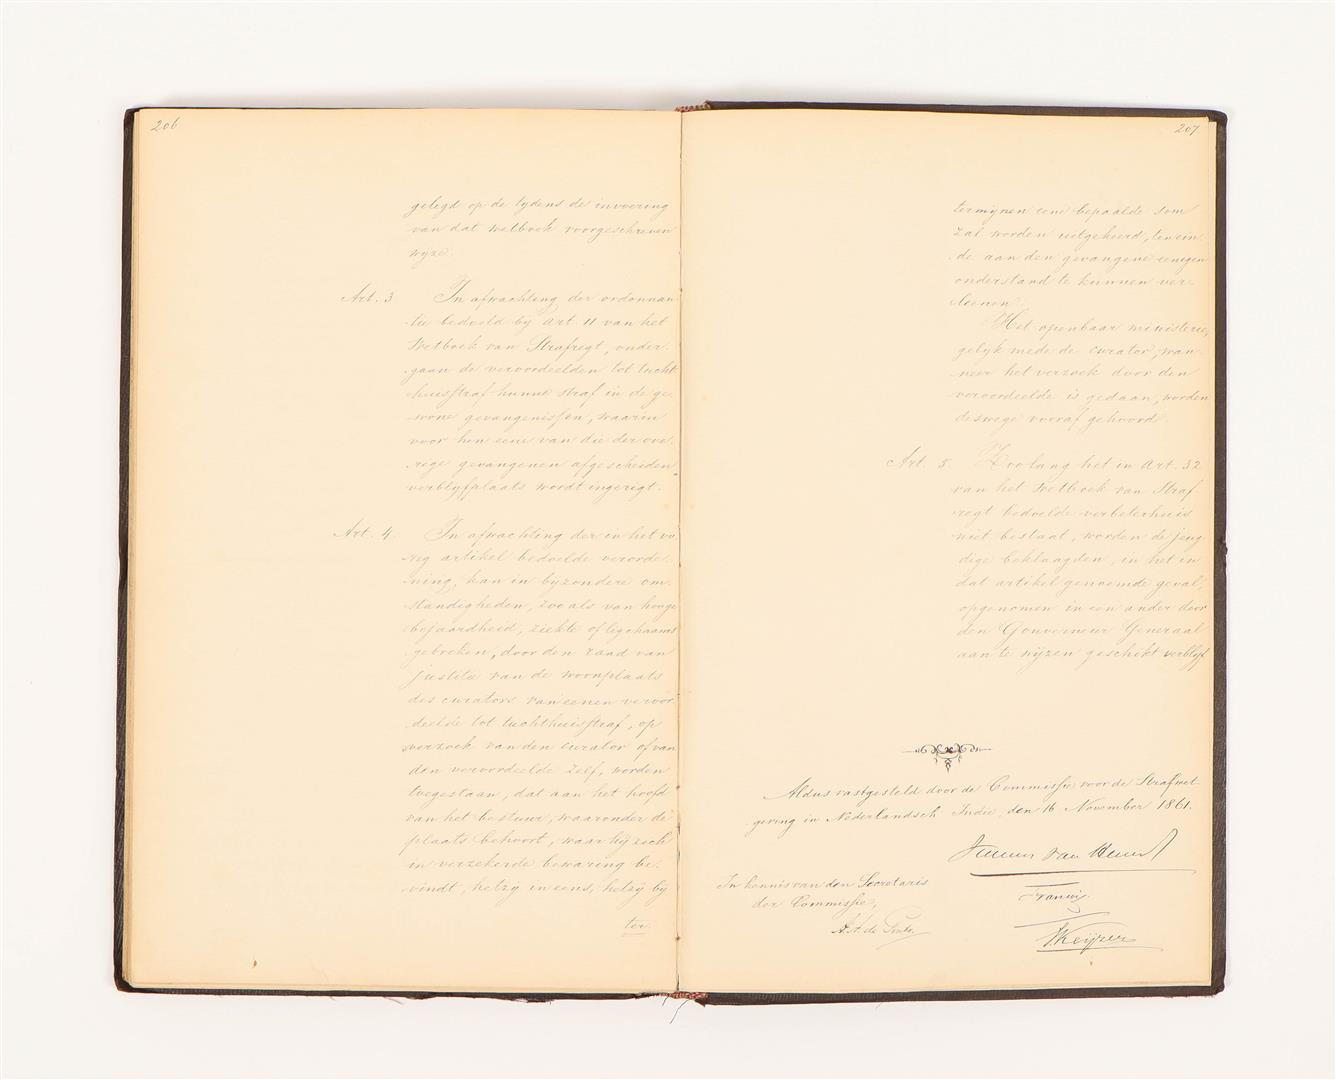 206
gelegd op de tydens de invoering
van dat wetboek voorgeschreven
wyze.
Art. 3 In afwachting der ordonnan-
tie bedoeld by art. 11 van het
Wetboek van Strafregt, onder-
gaan de veroordeelden tot tucht-
huisstraf hunne straf in de ge-
wone gevangenissen, waarin
voor hen eene van die der ove-
rige gevangenen afgescheiden
verblyfplaats wordt ingerigt.
Art. 4. In afwachting der in het vo-
rig artikel bedoelde verorde-
ning, kan in byzondere om-
standigheden, zooals van hooge
bejaardheid, ziekte of ligchaams
gebreken, door den raad van
justitie van de woonplaats
des curators van eenen veroor-
deelde tot tuchthuisstraf, op
verzoek van den curator of van
den veroordeelde zelf, worden
toegestaan, dat aan het hoofd
van het bestuur, waaronder de
plaats behoort, waar hy zich
in verzekerde bewaring be-
vindt, hetzy in eens, hetzy by
ter-
207
termynen eene bepaalde som
zal worden uitgekeerd, ten ein-
de aan den gevangene eenigen
onderstand te kunnen ver-
leenen.
Het openbaar ministerie,
gelyk mede de curator, wan-
neer het verzoek door den
veroordeelde is gedaan, worden
deswege vooraf gehoord.
Art. 5. Zoolang het in art. 32
van het Wetboek van Straf
regt bedoelde verbeterhuis
niet bestaat, worden de jeug
dige beklaagden, in het in
dat artikel genoemde geval,
opgenomen in een ander door
den Gouverneur Generaal
aan te wyzen geschikt verblyf
Aldus vastgesteld door de Commissie voor de Strafwet-
geving in Nederlandsch Indie, den 16 November 1861.
van
In kennis van den Secretaris
der Commissie,
Francis.
A. A. de
Keijzer